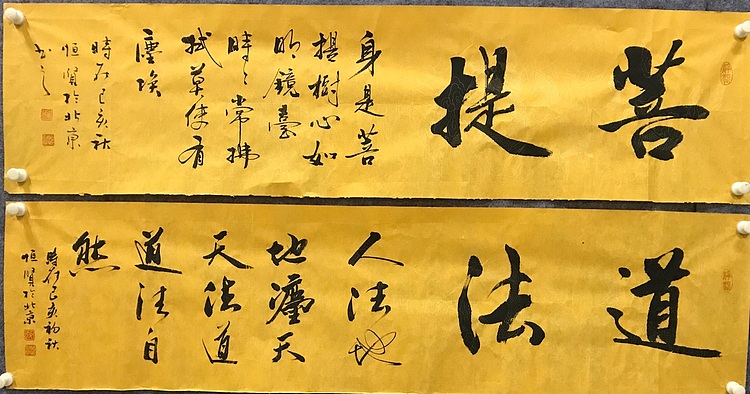 菩提
身是菩
提樹心如
明鏡臺
時々常拂
拭莫使有
塵埃
時在己亥秋
恒賢於北京
书之
道法
人法地
地灋天
天法道
道法自
然
時在己亥初秋
恒賢於北京